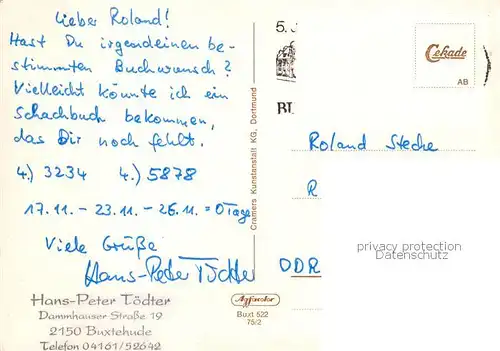 Lieber Roland!
Hast Du irgendeinen be-
stimmten Buchwunsch?
Vielleicht könnte ich ein
Schachbuch bekommen,
das Dir noch fehlt.
4.) 3234 4.) 5878
17.11. – 23.11. – 26.11. = 0 Tage
Viele Grüße
Hans-Peter Tödter
Hans-Peter Tödter
Dammhauser Straße 19
2150 Buxtehude
Telefon 04161/52642
Cramers Kunstanstalt KG, Dortmund
5. J
BU
Cekade
AB
Roland Stecke
R
privacy protection
Datenschutz
DDR
Buxt 522
75/2